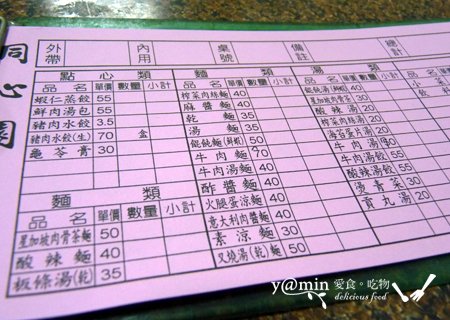 同心園
外帶 內用 桌號 備註 總計
點心類
品名 單價 數量 小計
蝦仁蒸餃 55
鮮肉湯包 55
豬肉水餃 3.5
豬肉水餃(生) 70 盒
龜苓膏 30
麵類
品名 單價 數量 小計
星加坡肉骨茶麵 50
酸辣麵 40
板條湯(乾) 35
麵類
品名 單價 數量 小計
榨菜肉絲麵 40
麻醬麵 40
乾麵 35
湯麵 35
餛飩麵(鮮蝦) 50
牛肉麵 70
牛肉湯麵 50
酢醬麵 40
火腿蛋涼麵 50
意大利肉醬麵 40
素涼麵 30
叉燒湯(乾)麵 50
湯類
品名 單價
餛飩湯(鮮蝦) 40
星加坡肉骨茶湯 30
酸辣湯 20
榨菜肉絲湯
海苔蛋片湯 20
牛肉湯
酸辣湯餃 50
燙青菜 30
貢丸湯 20
y@min 愛食。吃物
delicious food